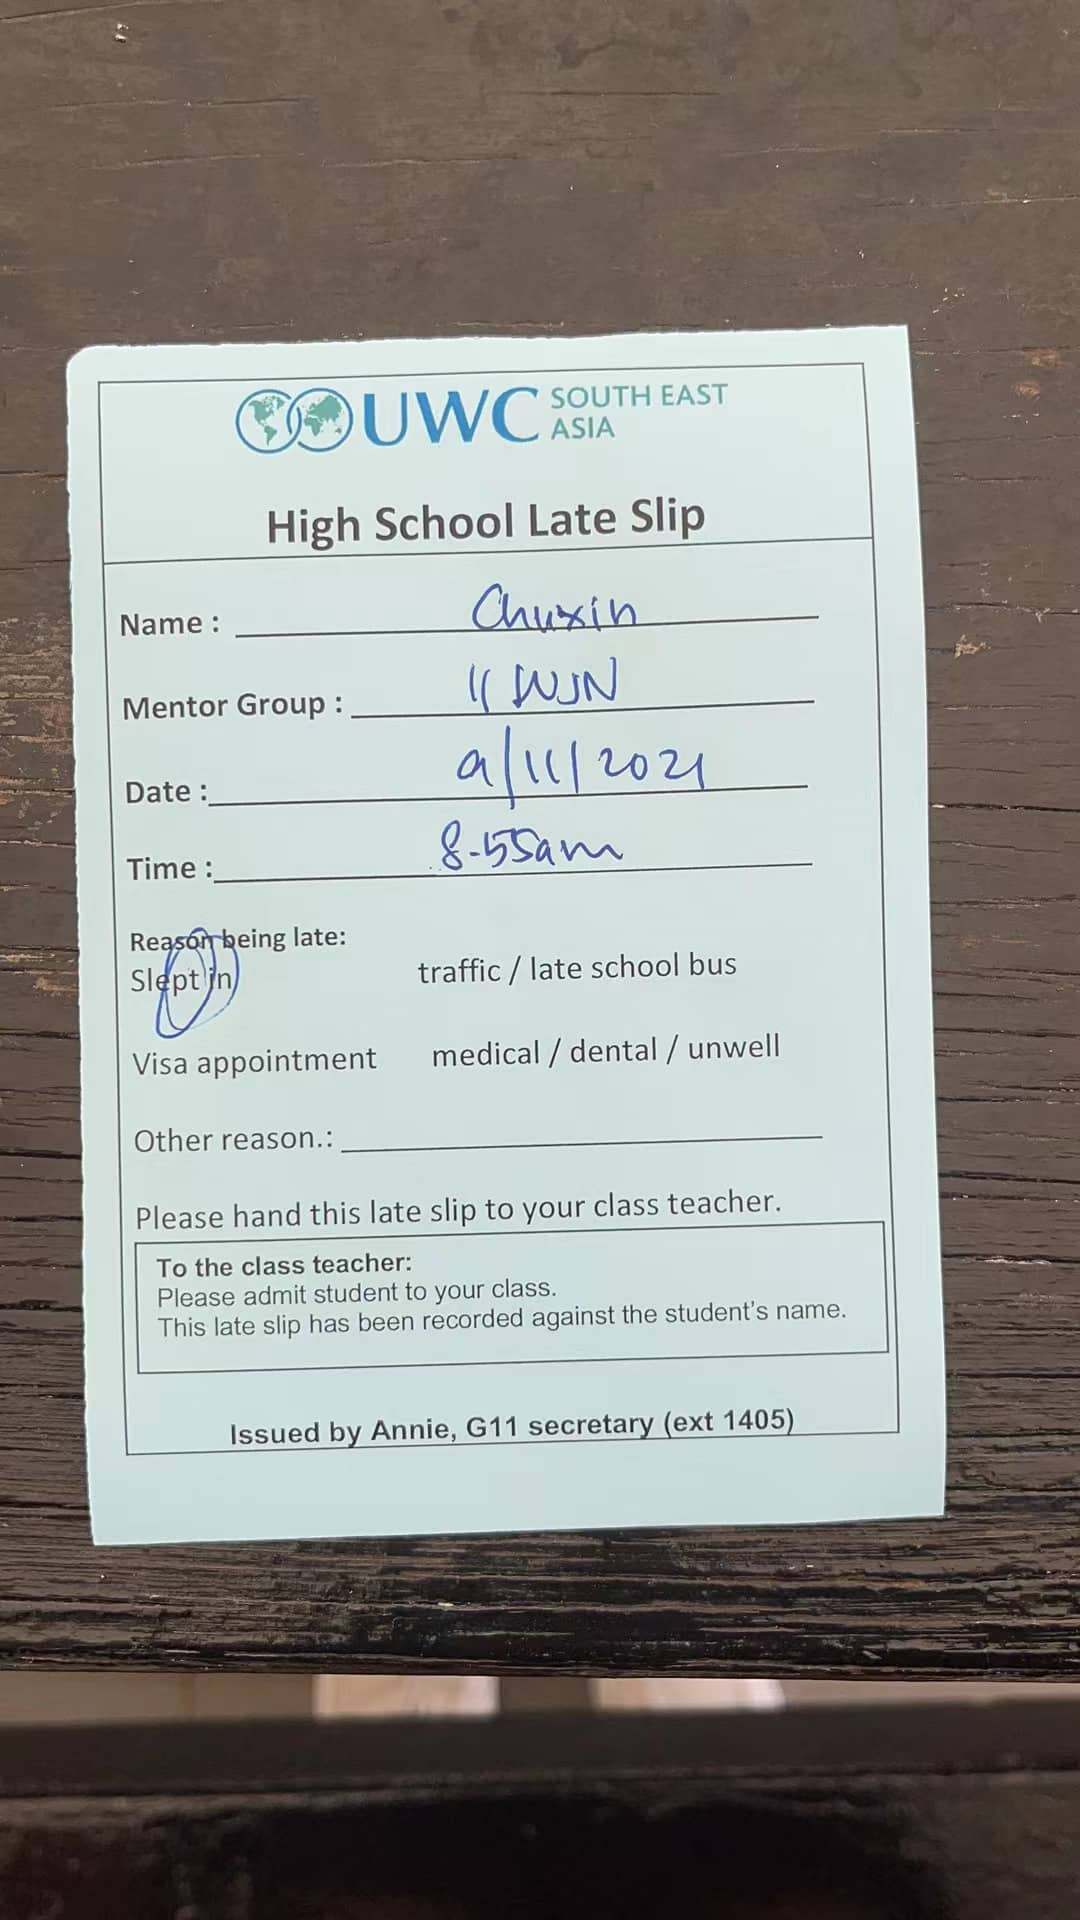 UWC SOUTH EAST
ASIA
High School Late Slip
Name : Chuxin
Mentor Group : 11 WJN
Date : 9/11/2021
Time : 8-55am
Reason being late:
Slept in traffic / late school bus
Visa appointment medical / dental / unwell
Other reason.:
Please hand this late slip to your class teacher.
To the class teacher:
Please admit student to your class.
This late slip has been recorded against the student's name.
Issued by Annie, G11 secretary (ext 1405)